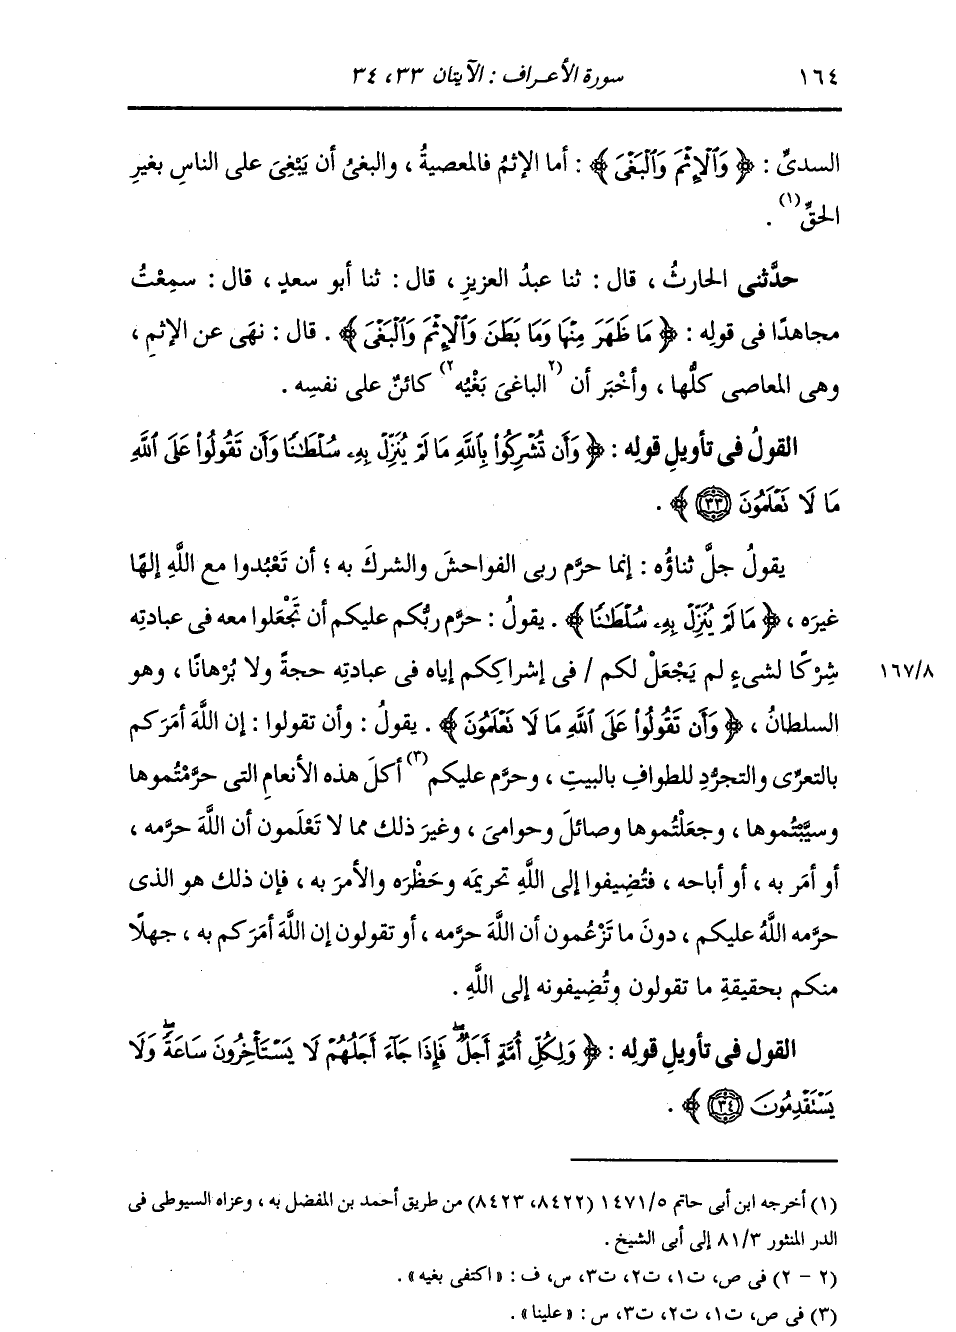 ١٦٤ سورة الأعراف : الآيتان ٣٣، ٣٤
السدىِّ : ﴿ وَٱلْإِثْمَ وَٱلْبَغْىَ ﴾ : أما الإثمُ فالمعصيةُ ، والبغىُ أن يَبْغِىَ على الناسِ بغيرِ
الحقِّ(١) .
حدَّثنى الحارثُ ، قال : ثنا عبدُ العزيزِ ، قال : ثنا أبو سعدٍ ، قال : سمِعْتُ
مجاهدًا فى قولِه : ﴿ مَا ظَهَرَ مِنْهَا وَمَا بَطَنَ وَٱلْإِثْمَ وَٱلْبَغْىَ ﴾ . قال : نهَى عن الإثمِ ،
وهى المعاصى كلُّها ، وأخْبَر أن (٢الباغىَ بَغْيُه٢) كائنٌ على نفسِه .
القولُ فى تأويلِ قولِه : ﴿ وَأَن تُشْرِكُوا۟ بِٱللَّهِ مَا لَمْ يُنَزِّلْ بِهِۦ سُلْطَٰنًا وَأَن تَقُولُوا۟ عَلَى ٱللَّهِ
مَا لَا تَعْلَمُونَ ٣٣ ﴾ .
يقولُ جلَّ ثناؤُه : إنما حرَّم ربى الفواحشَ والشركَ به ؛ أن تَعْبُدوا مع اللَّهِ إلهًا
غيرَه ، ﴿ مَا لَمْ يُنَزِّلْ بِهِۦ سُلْطَٰنًا ﴾ . يقولُ : حرَّم ربُّكم عليكم أن تَجْعَلوا معه فى عبادتِه
شِرْكًا لشىءٍ لم يَجْعَلْ لكم / فى إشراكِكم إياه فى عبادتِه حجةً ولا بُرْهانًا ، وهو ١٦٧/٨
السلطانُ ، ﴿ وَأَن تَقُولُوا۟ عَلَى ٱللَّهِ مَا لَا تَعْلَمُونَ ﴾ . يقولُ : وأن تقولوا : إن اللَّهَ أمَرَكم
بالتعرِّى والتجرُّدِ للطوافِ بالبيتِ ، وحرَّم عليكم(٣) أكلَ هذه الأنعامِ التى حرَّمْتُموها
وسيَّبْتُموها ، وجعَلْتُموها وصائلَ وحوامىَ ، وغيرَ ذلك مما لا تَعْلَمون أن اللَّهَ حرَّمه ،
أو أمَر به ، أو أباحه ، فتُضِيفوا إلى اللَّهِ تحريمَه وحَظْرَه والأمرَ به ، فإن ذلك هو الذى
حرَّمه اللَّهُ عليكم ، دونَ ما تَزْعُمون أن اللَّهَ حرَّمه ، أو تقولون إن اللَّهَ أمَرَكم به ، جهلًا
منكم بحقيقةِ ما تقولون وتُضِيفونه إلى اللَّهِ .
القول فى تأويلِ قولِه : ﴿ وَلِكُلِّ أُمَّةٍ أَجَلٌ ۖ فَإِذَا جَآءَ أَجَلُهُمْ لَا يَسْتَأْخِرُونَ سَاعَةً ۖ وَلَا
يَسْتَقْدِمُونَ ٣٤ ﴾ .
(١) أخرجه ابن أبى حاتم ١٤٧١/٥ (٨٤٢٢، ٨٤٢٣) من طريق أحمد بن المفضل به ، وعزاه السيوطى فى
الدر المنثور ٨١/٣ إلى أبى الشيخ .
(٢ - ٢) فى ص، ت١، ت٢، ت٣، س، ف : « اكتفى بغيه » .
(٣) فى ص، ت١، ت٢، ت٣، س : « علينا » .